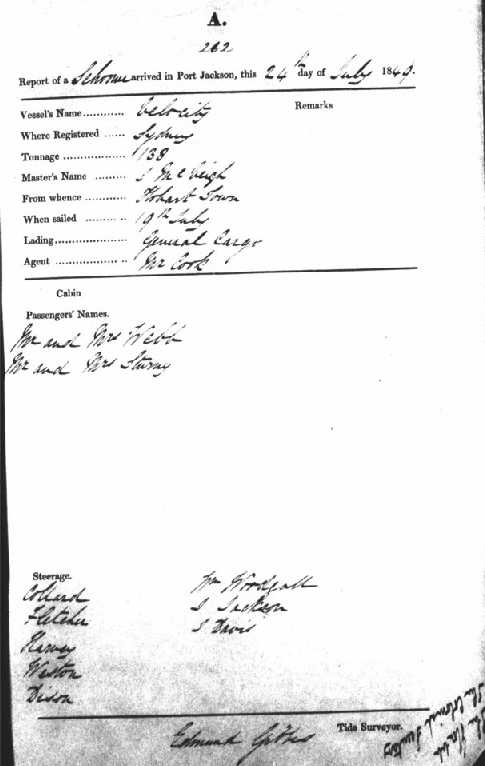 A.
262
Report of a Schooner arrived in Port Jackson, this 24th day of July 1849.
Remarks
Vessel's Name ............ Velocity
Where Registered ...... Sydney
Tonnage .................. 138
Master's Name ......... J McVeigh
From whence ........... Hobart Town
When sailed ............ 19th July
Lading..................... General Cargo
Agent ..................... Mr Cook
Cabin
Passengers' Names.
Mr and Mrs Webb
Mr and Mrs
Steerage.
Collard
Fletcher
Harvey
Weston
Dixon
Wm
J Jackson
J Davis
Edmund Gibbes
Tide Surveyor.
The Colonial